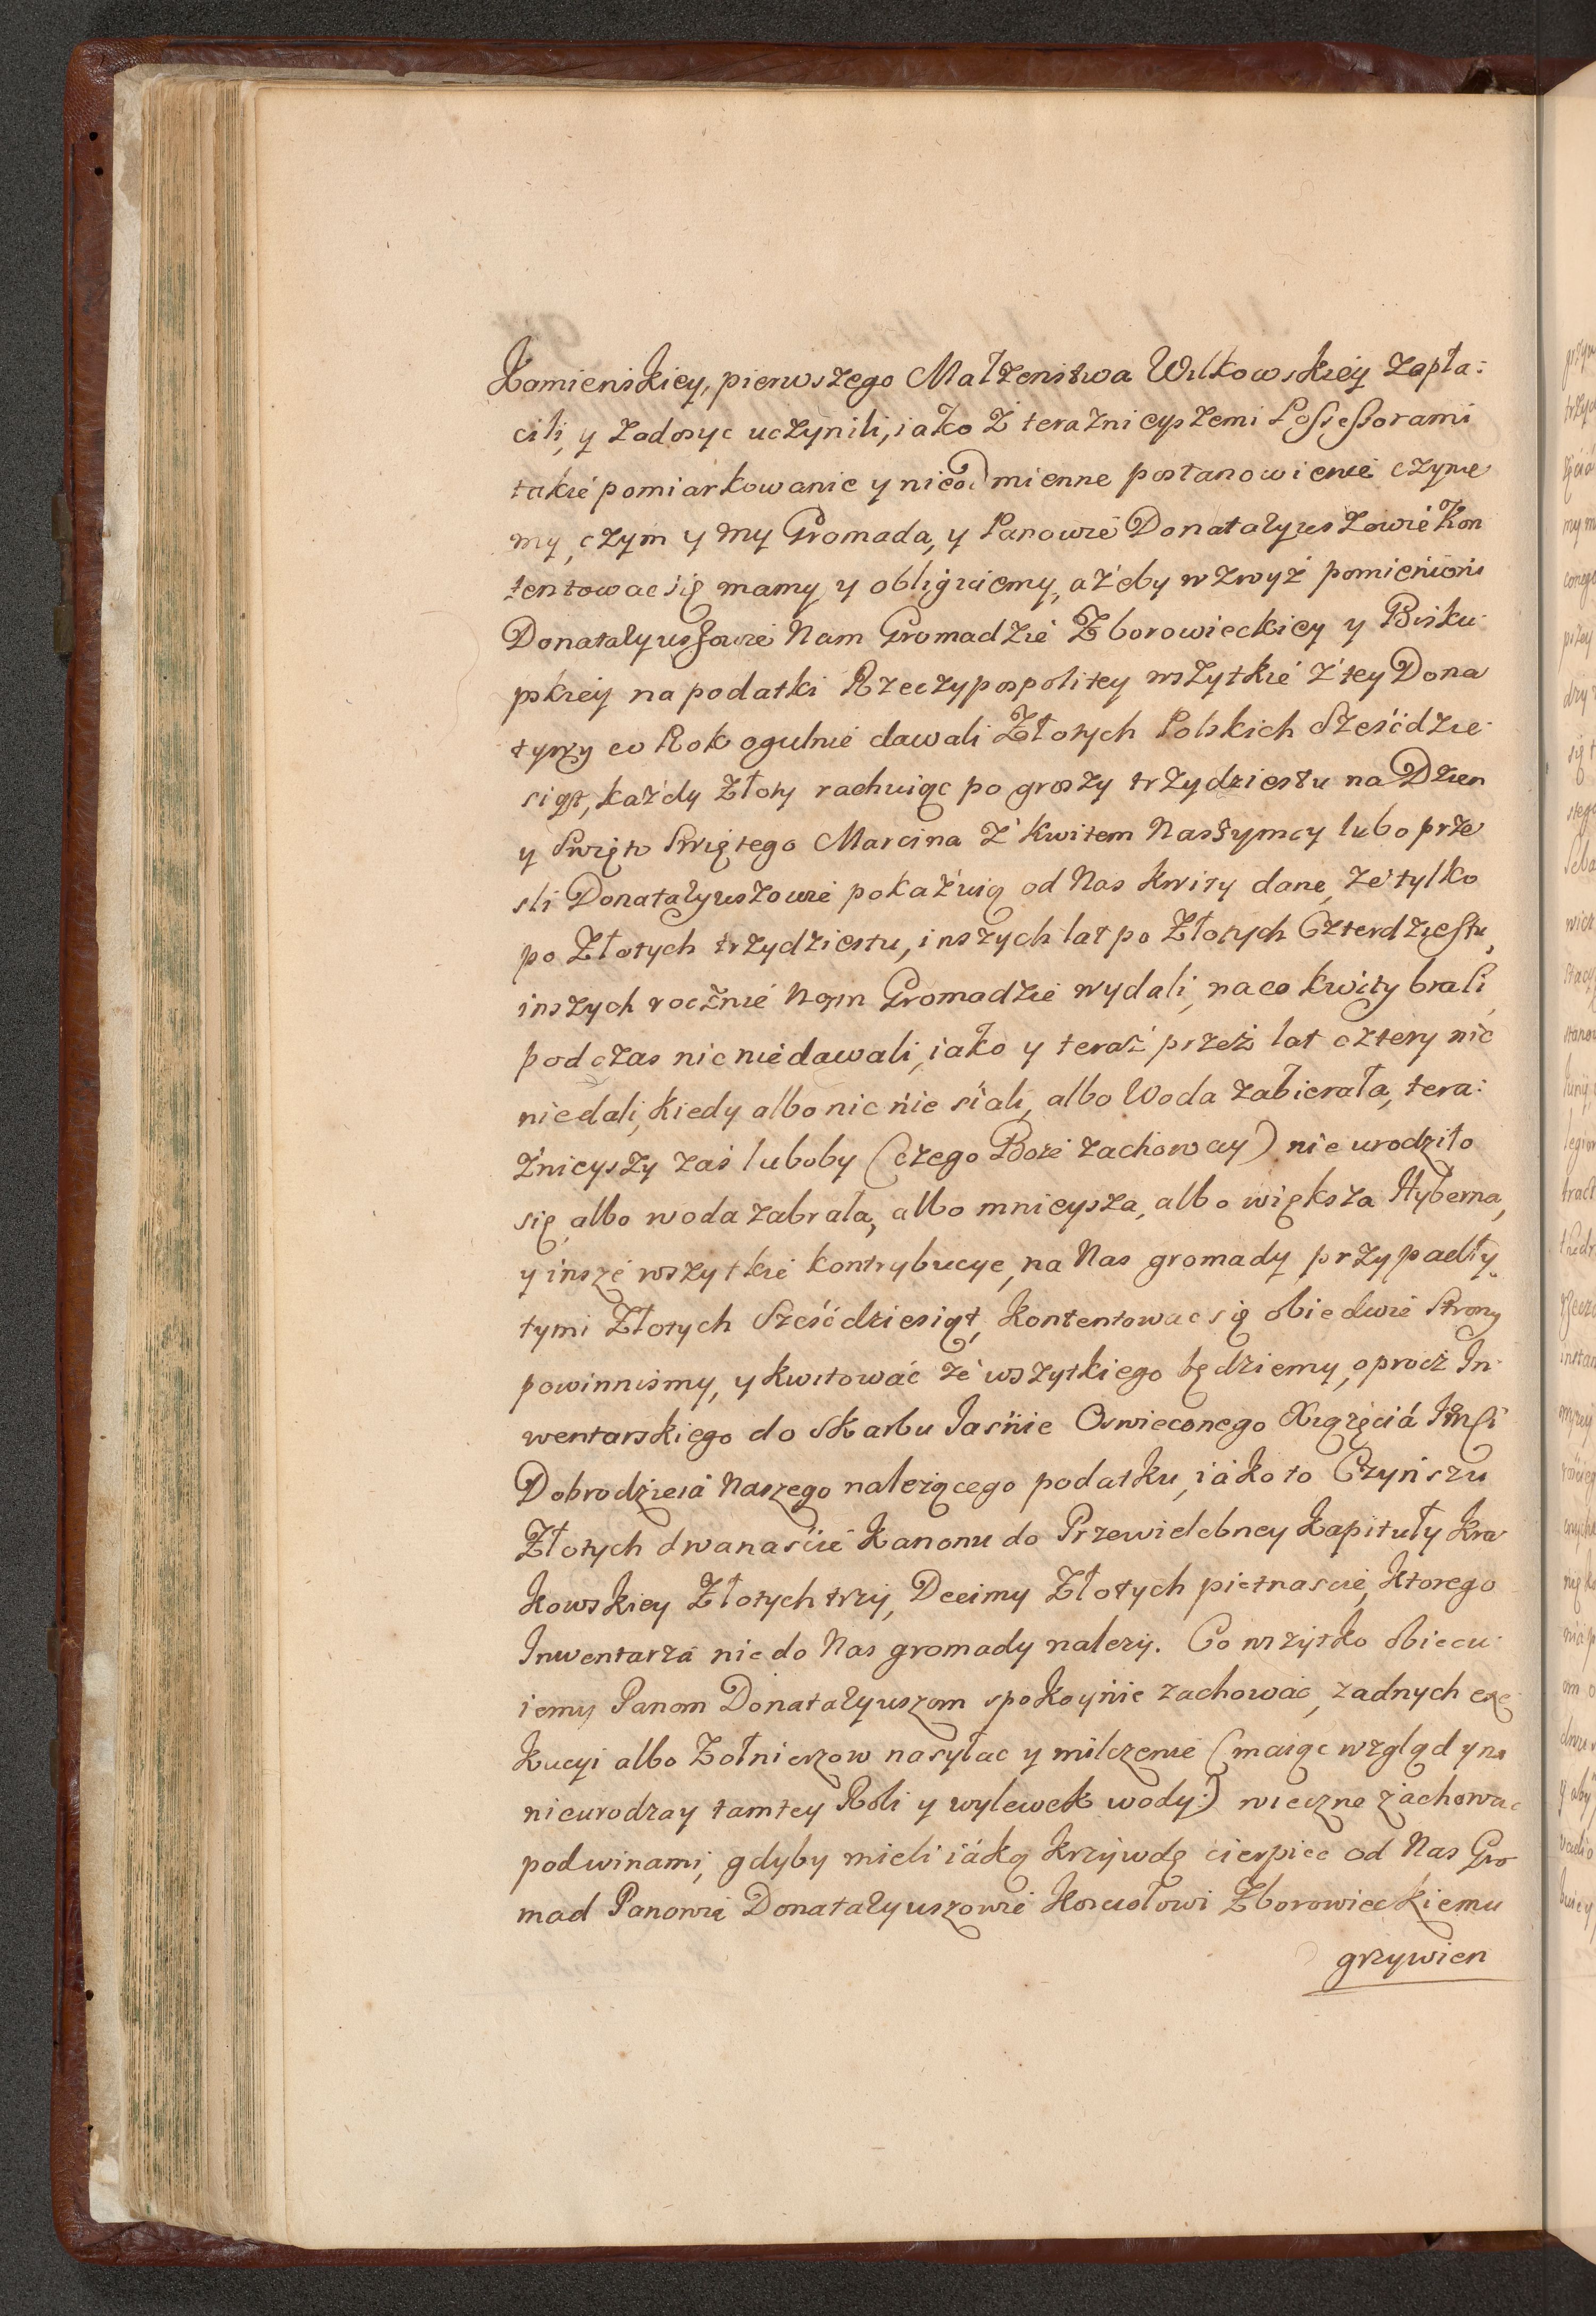 Kamienskiey, pierwszego Małżenstwa Wilkowskiey zapła:
cili, y zadosyc uczynili, iako z teraznieyszemi Possessorami
takie pomiarkowanie y nieodmienne postanowienie czynie
my, czym y my Gromada, y Panowie Donataryuszowie Kon
tentowac się mamy y obliguiemy, ażeby wzwyż pomienioni
Donataryuszowie Nam Gromadzie Zborowieckiey y Bisku:
pskiey na podatki Rzeczypospolitey wszytkie z tey Dona
tywy co Rok ogulnie dawali Złotych Polskich Sześćdzie
siąt, każdy Złoty rachuiąc po groszy trzydziestu na Dzien
y Swięto Swiętego Marcina z Kwitem Naszym
Donataryuszowie pokażuią od Nas kwity dane, że tylko
po Złotych trzydziestu, inszych lat po Złotych Czterdziestu,
inszych rocznie Nam Gromadzie wydali, na co kwity brali,
podczas nic niedawali, iako y teraź przeż lat cztery nic
niedali, kiedy albo nic nie siali, albo Woda zabierała, tera:
żnieyszy zaś luboby (czego Boże zachoway) nie urodziło
się, albo woda zabrała, albo mnieysza, albo większa Hyberna,
y insze wszytkie kontrybucye, na Nas gromady przypadły,
tymi Złotych Sześćdziesiąt, kontentowac się obiedwie Strony
powinnismy, y kwitować ze wszytkiego będziemy, oprocz In:
wentarskiego do Skarbu Jasnie Oswieconego Xiązęciá Jmsci
Dobrodzieiá Naszego należącego podatku, iáko to Czynszu
Złotych dwanaście Kanonu do Przewielebney Kapituły Kra
kowskiey Złotych trzy, Decimy Złotych pietnascie, ktorego
Inwentarza nic do Nas gromady nalezy. Co wszytko obiecu:
iemy Panom Donataryuszom spokoynie zachować, żadnych exe
kucyi albo Żołnierzow nasyłac y milczenie (maiąc wzgląd y na
nieurodzay tamtey Roli y wylewek wody:) wieczne zachowac
pod winami, gdyby mieli iáką krzywdę cierpiec od Nas Gro
mad Panowie Donataryuszowie Kosciołowi Zborowieckiemu
grzywien